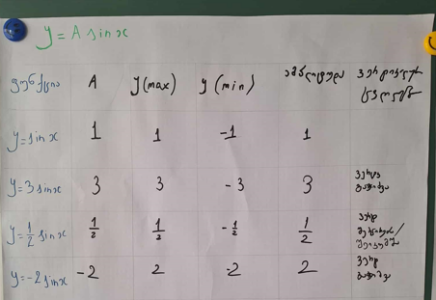 y = A sinx
ფუნქცია A y(max) y(min) ამპლიტუდა ვერტიკალურ
y=sinx 1 1 -1 1
y=3sinx 3 3 -3 3
y=1/2 sinx 1/2 1/2 -1/2 1/2
y=-2sinx -2 2 -2 2